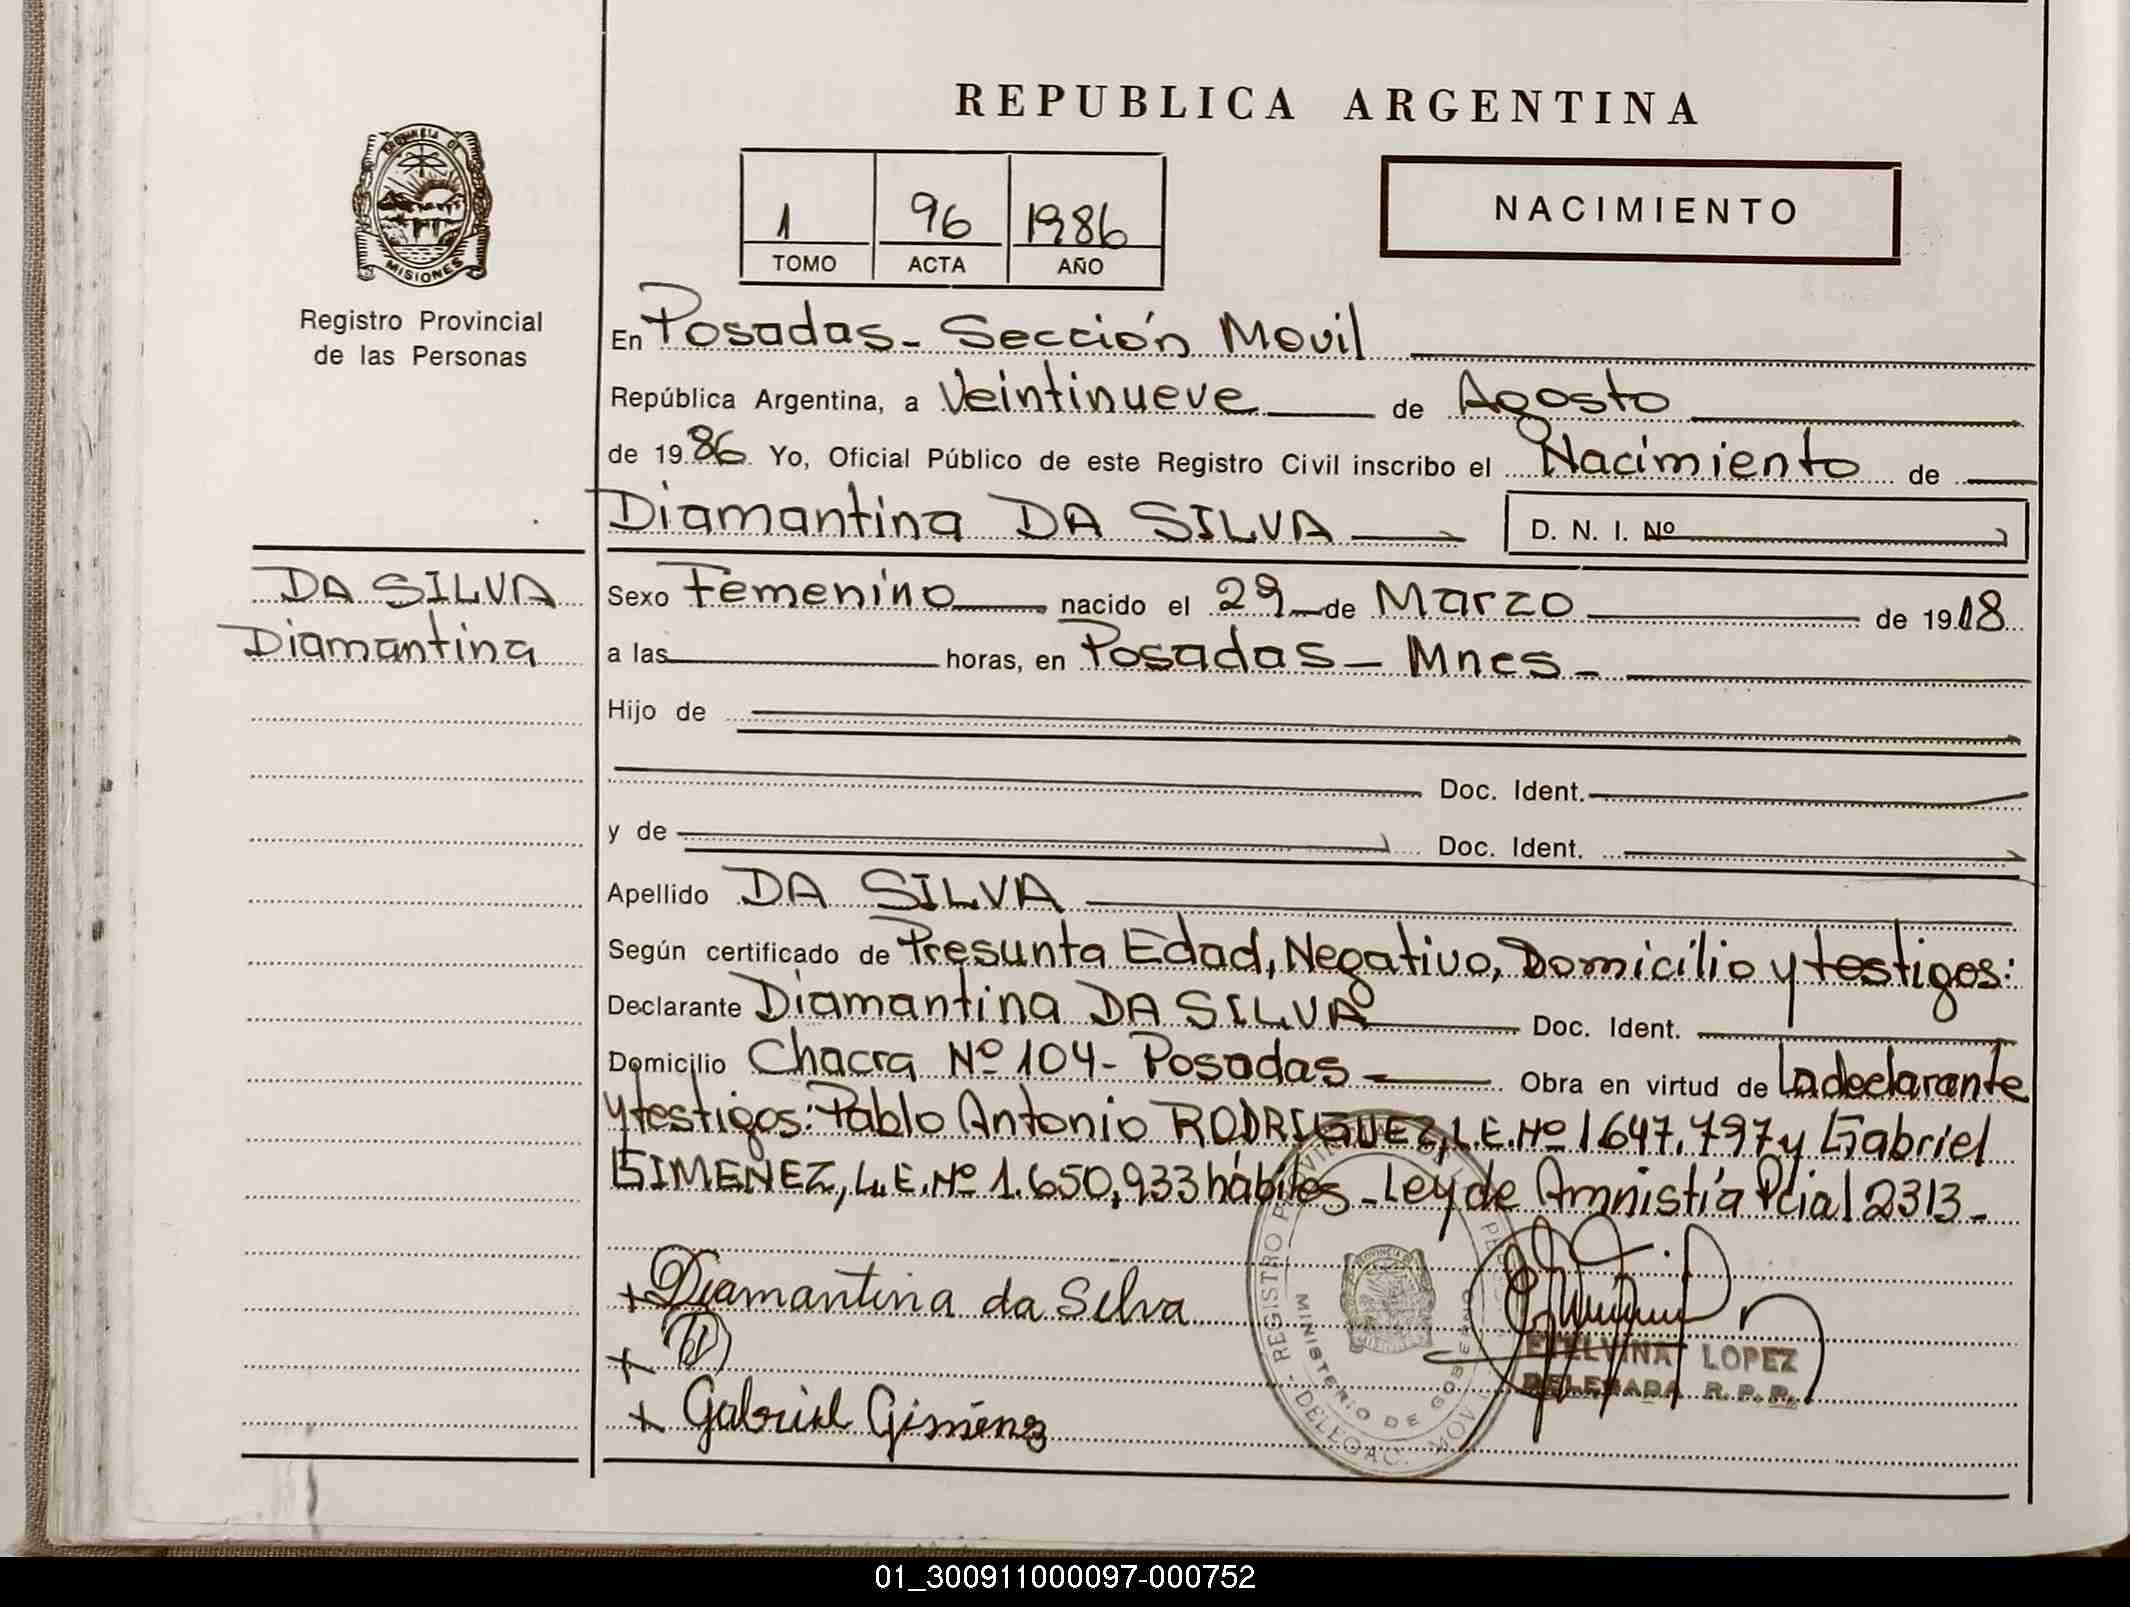 REPUBLICA ARGENTINA
PROVINCIA DE
MISIONES
Registro Provincial
de las Personas
1 96 1986
TOMO ACTA AÑO
NACIMIENTO
En Posadas - Sección Movil
República Argentina, a Veintinueve de Agosto
de 1986 Yo, Oficial Público de este Registro Civil inscribo el Nacimiento de
Diamantina DA SILVA D. N. I. Nº
DA SILVA
Diamantina
Sexo Femenino nacido el 29 de Marzo de 1918
a las horas, en Posadas - Mnes -
Hijo de
Doc. Ident.
y de Doc. Ident.
Apellido DA SILVA
Según certificado de Presunta Edad, Negativo, Domicilio y testigos:
Declarante Diamantina DA SILVA Doc. Ident.
Domicilio Chacra Nº 104 - Posadas Obra en virtud de la declarante
y testigos: Pablo Antonio RODRIGUEZ, L.E. Nº 1.647.797 y Gabriel
GIMENEZ, L.E. Nº 1.650.933 hábiles - Ley de Amnistía Pcial 2313 -
+ Diamantina da Silva
+
+ Gabriel Giménez
MINISTERIO DE GOBIERNO
ETELVINA LOPEZ
DELEGADA R.P.P.
01_300911000097-000752